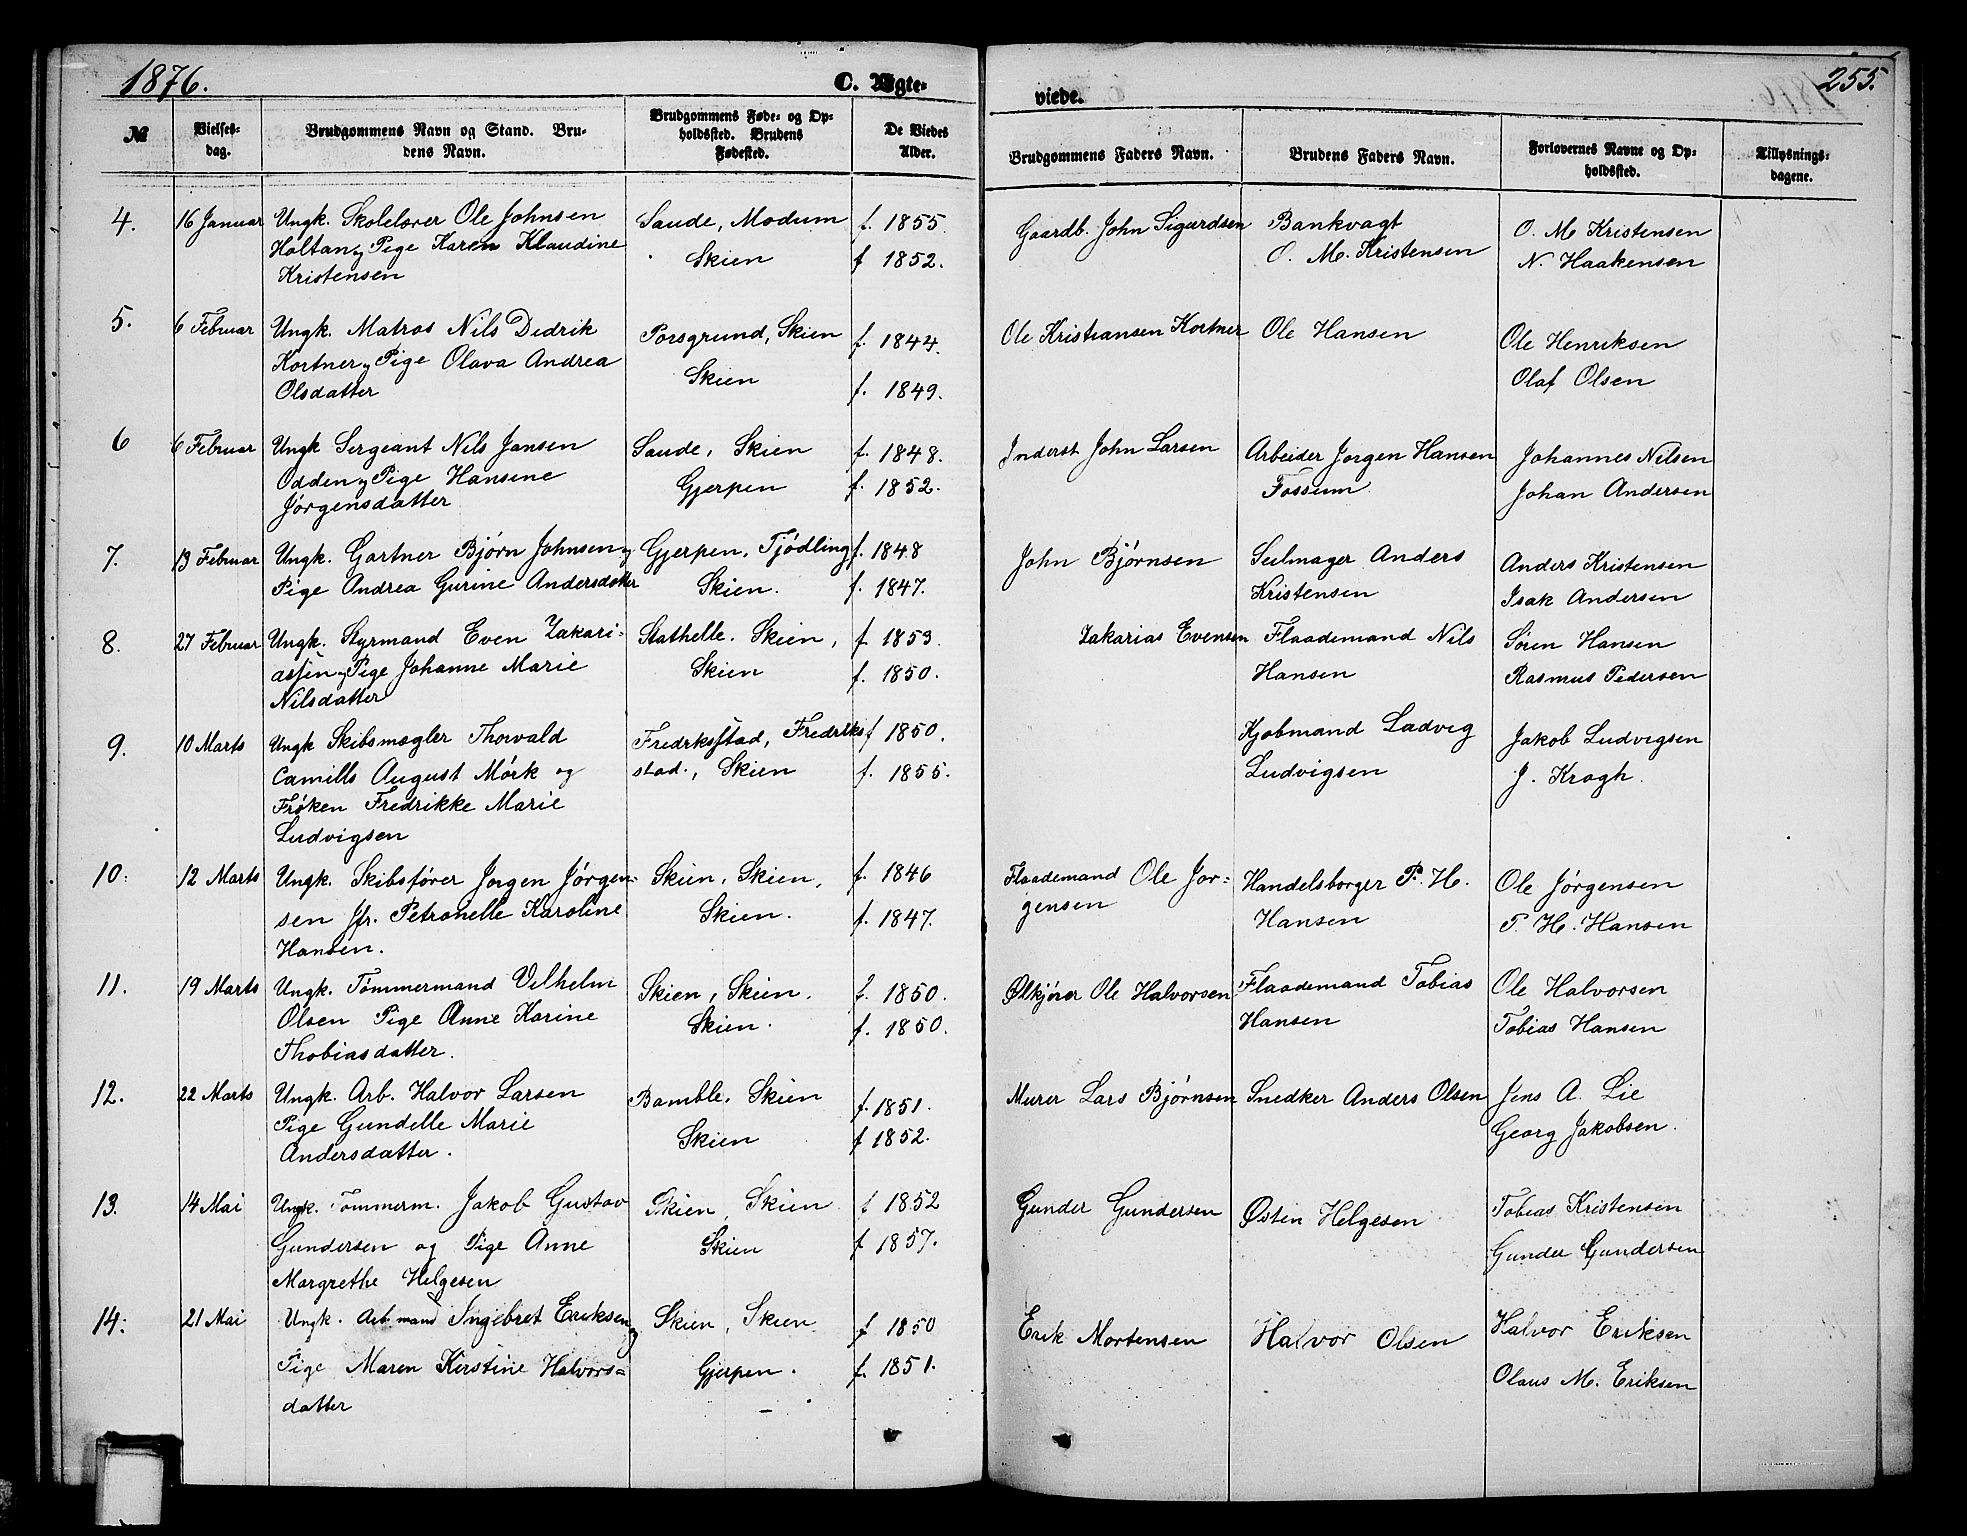 1876.
C. Ægte-
viede.
255.
№
Vielses-
dag.
Brudgommens Navn og Stand. Bru-
dens Navn.
Brudgommens Føde- og Op-
holdssted. Brudens
Fødested.
De Viedes
Alder.
Brudgommens Faders Navn.
Brudens Faders Navn.
Forlovernes Navne og Op-
holdssted.
Tillysnings-
dagene.
4.
16 Januar
Ungk. Skolelærer Ole Johnsen
Holtan og Pige Karen Klaudine
Kristensen
Saude, Modum
Skien
f. 1855.
f 1852.
Gaardb. John Sigurdsen
Bankvagt
O. M. Kristensen
O. M Kristensen
N. Haakensen
5.
6 Februar
Ungk. Matros Nils Didrik
Kortner og Pige Olava Andrea
Olsdatter
Porsgrund, Skien
Skien
f. 1844.
f. 1849.
Ole Kristiansen Kortner
Ole Hansen
Ole Henriksen
Olaf Olsen
6
6 Februar
Ungk Sergeant Nils Jansen
Odden og Pige Hansine
Jørgensdatter
Saude, Skien
Gjerpen
f. 1848.
f. 1852.
Inderst John Larsen
Arbeider Jorgen Hansen
Fossum
Johannes Nilsen
Johan Andersen
7.
13 Februar
Ungk. Gartner Bjørn Johnsen og
Pige Andrea Gurine Andersdatter
Gjerpen, Tjødling
Skien.
f. 1848
f. 1847.
John Bjørnsen
Seilmager Anders
Kristensen
Anders Kristensen
Isak Andersen
8.
27 Februar
Ungk. Styrmand Even Zakari-
assen og Pige Johanne Marie
Nilsdatter
Stathelle. Skien,
Skien
f. 1853.
f. 1850.
Zakarias Evensen
Flaademand Nils
Hansen
Søren Hansen
Rasmus Pedersen
9.
10 Marts
Ungk Skibsmægler Thorvald
Camills August Mørk og
Frøken Fredrikke Marie
Ludvigsen
Fredrksstad, Fredriks
stad., Skien
f 1850.
f. 1855.
Kjøbmand Ludvig
Ludvigsen
Jakob Ludvigsen
J. Krogh.
10.
12 Marts
Ungk. Skibsfører Jorgen Jórgen-
sen Jfr. Petronelle Karoline
Hansen.
Skien, Skien,
Skien.
f. 1846
f. 1847.
Flaademand Ole Jor-
gensen
Handelsborger P. H.
Hansen
Ole Jørgensen
P. H. Hansen
11.
19 Marts
Ungk. Tømmermand Vilhelm
Olsen Pige Anne Karine
Thobiasdatter.
Skien, Skien.
Skien.
f. 1850.
f. 1850.
Ølkjører Ole Halvorsen
Flaademand Tobias
Hansen
Ole Halvorsen
Tobias Hansen
12.
22 Marts
Ungk. Arb. Halvor Larsen
Pige Gundelle Marie
Andersdatter.
Bamble, Skien
Skien
f. 1851.
f 1852.
Murer Lars Bjørnsen
Snedker Anders Olsen
Jens A. Lie
Georg Jakobsen.
13.
14 Mai
Ungk. Tømmerm. Jakob Gustav
Gundersen og Pige Anne
Margrethe Helgesen
Skien, Skien
Skien
f 1852
f 1857.
Gunder Gundersen
Østen Helgesen
Tobias Kristensen
Gunder Gundersen
14.
21 Mai
Ungk. Arb.mand Ingebret Eriksen og
Pige Maren Kirstine Halvors-
datter
Skien, Skien
Gjerpen.
f 1850
f. 1851.
Erik Mortensen
Halvor Olsen
Halvor Eriksen
Olaus M. Eriksen